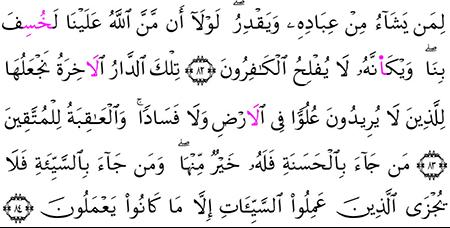 لِمَن يَشَآءُ مِنْ عِبَادِهِۦ وَيَقْدِرُ ۖ لَوْلَآ أَن مَّنَّ اَ۬للَّهُ عَلَيْنَا لَخُسِفَ
بِنَا ۖ وَيْكَأَنَّهُۥ لَا يُفْلِحُ اُ۬لْكَـٰفِرُونَ ٨٢ تِلْكَ اَ۬لدَّارُ اُ۬لَاخِرَةُ نَجْعَلُهَا
لِلَّذِينَ لَا يُرِيدُونَ عُلُوًّا فِى اِ۬لَارْضِ وَلَا فَسَادًا ۚ وَالْعَـٰقِبَةُ لِلْمُتَّقِينَ
٨٣ مَن جَآءَ بِالْحَسَنَةِ فَلَهُۥ خَيْرٌ مِّنْهَا ۖ وَمَن جَآءَ بِالسَّيِّئَةِ فَلَا
يُجْزَى اَ۬لَّذِينَ عَمِلُوا۟ اُ۬لسَّيِّـَٔاتِ إِلَّا مَا كَانُوا۟ يَعْمَلُونَ ٨٤